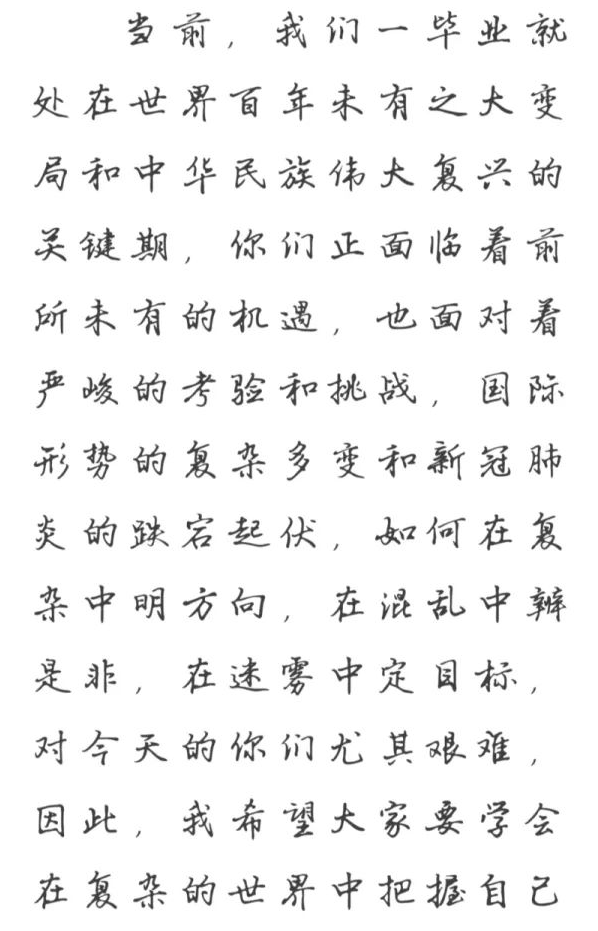 当前，我们一毕业就
处在世界百年未有之大变
局和中华民族伟大复兴的
关键期，你们正面临着前
所未有的机遇，也面对着
严峻的考验和挑战，国际
形势的复杂多变和新冠肺
炎的跌宕起伏，如何在复
杂中明方向，在混乱中辨
是非，在迷雾中定目标，
对今天的你们尤其艰难，
因此，我希望大家要学会
在复杂的世界中把握自己